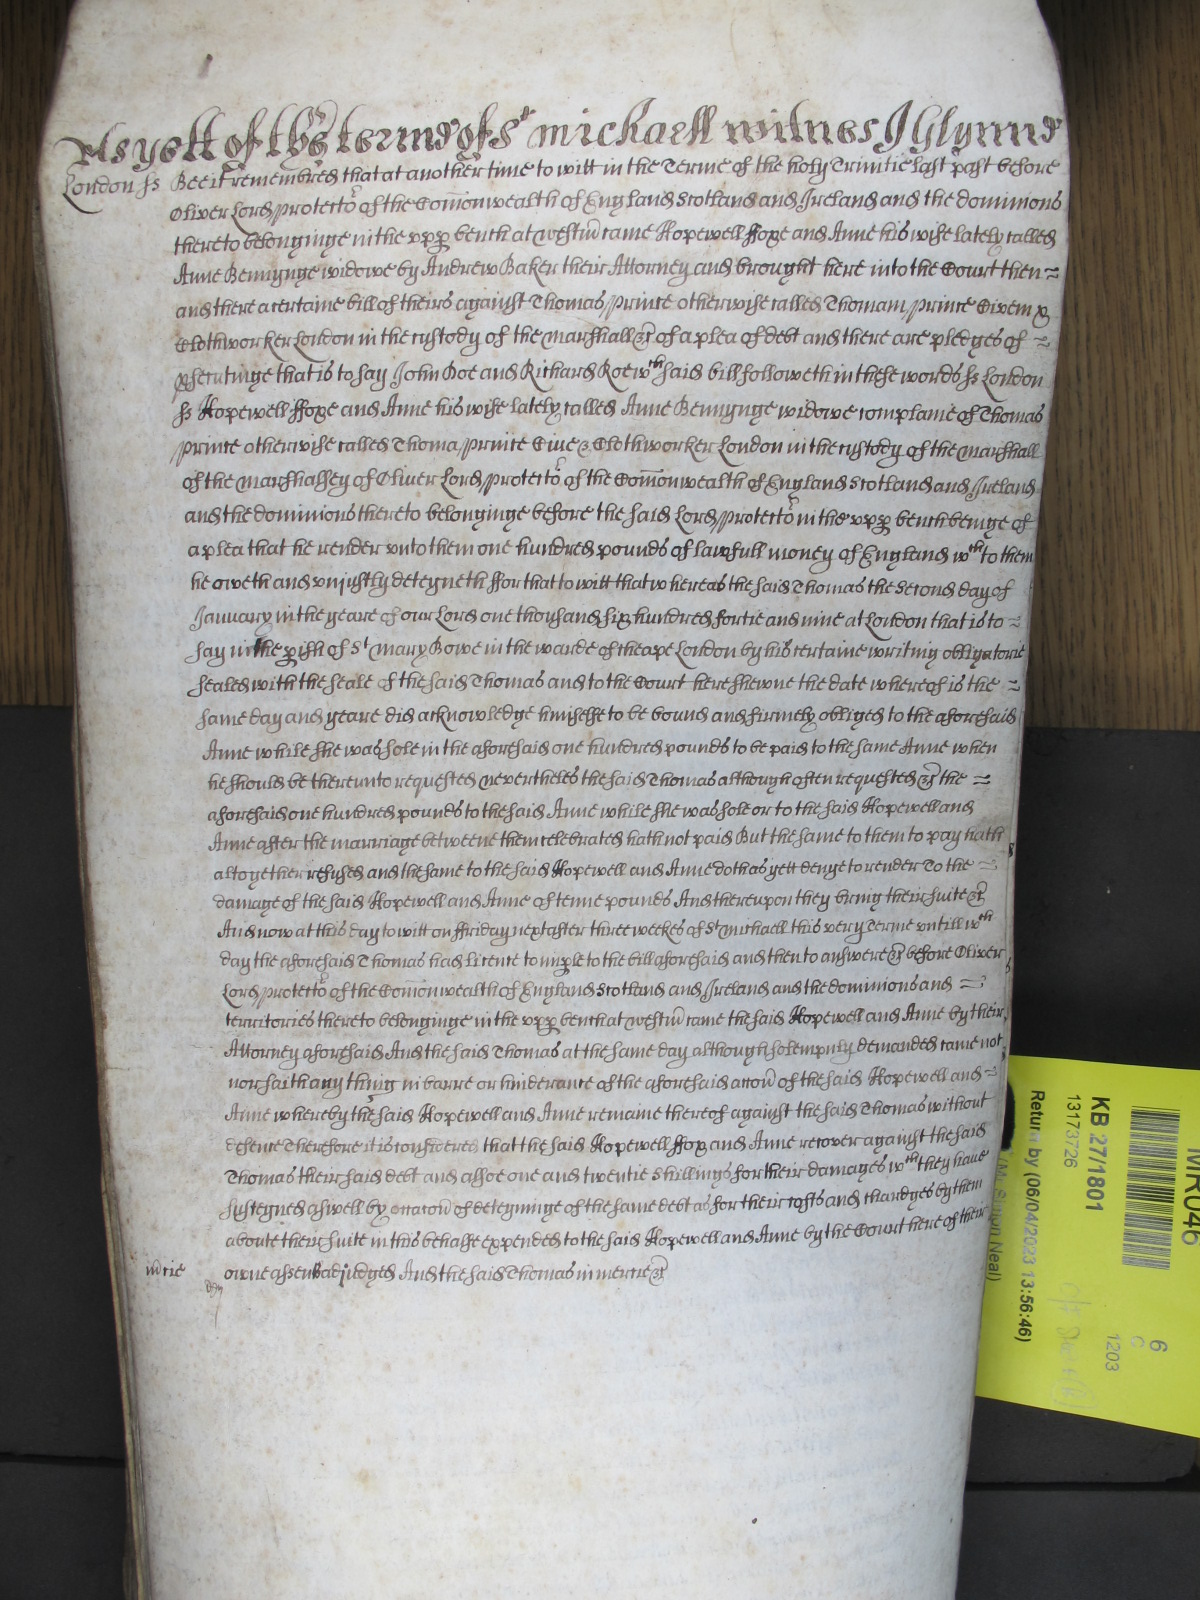 As yett of the terme of St Michaell witnes J Glynne
London ss Bee it remembred that at another time to witt in the Terme of the holy Trinitie last past before
Oliver Lord Protector of the Com̄onwealth of England Scotland and Ireland and the dominions
thereto belonginge in the upp bench at westm̄ came Hopewell ffoxe and Anne his wife lately called
Anne Bennynge widowe by Andrew Baker their Attorney and brought here into the Court then =
and there a certaine bill of theirs against Thomas Prince otherwise called Thomam Prince Civem &
Clothworker London in the custody of the marshall &c of a plea of debt and there are pledges of =
psecutinge that is to say John Doe and Richard Roe wch said bill followeth in these words ss London
ss Hopewell ffoxe and Anne his wife lately called Anne Bennynge widowe complaine of Thomas
Prince otherwise called Thoma Prince Cive & Clothworker London in the custody of the marshall
of the marshalsey of Oliver Lord Protector of the Com̄onwealth of England Scotland and Ireland
and the dominions thereto belonginge before the said Lord Protector in the upp bench beinge of
a plea that he render unto them one hundred pounds of lawfull money of England wch to them
he oweth and unjustly deteyneth ffor that to witt that whereas the said Thomas the second day of
January in the yeare of our Lord one thousand six hundred fortie and nine at London that is to =
say in the pish of St Mary Bowe in the warde of Cheape London by his certaine writing obligatorie
sealed with the seale of the said Thomas and to the Court here shewne the date whereof is the =
same day and yeare did acknowledge himselfe to be bound and firmely obliged to the aforesaid
Anne while she was sole in the aforesaid one hundred pounds to be paid to the same Anne when
he should be thereunto requested Nevertheles the said Thomas although often requested &c the =
aforesaid one hundred pounds to the said Anne while she was sole or to the said Hopewell and
Anne after the marriage betweene them celebrated hath not paid But the same to them to pay hath
altogether refused and the same to the said Hopewell and Anne doth as yett denye to render To the =
damage of the said Hopewell and Anne of tenne pounds And thereupon they bring their suite &c
And now at this day to witt on ffriday next after three weekes of St Michaell this very Terme untill wch
day the aforesaid Thomas had licence to imple to the bill aforesaid and then to answere &c before Oliver
Lord Protector of the Com̄onwealth of England Scotland and Ireland and the dominions and =
territories thereto belonginge in the upp bench at westm̄ came the said Hopewell and Anne by their
Attorney aforesaid And the said Thomas at the same day although solempnly demanded came not
nor saith any thing in barre or hinderance of the aforesaid accōn of the said Hopewell and =
Anne whereby the said Hopewell and Anne remaine thereof against the said Thomas without
defence Therefore it is considered that the said Hopewell ffox and Anne recover against the said
Thomas their said debt and alsoe one and twentie shillings for their damages wch they have
susteyned aswell by occacōn of deteyninge of the same debt as for their costs and chardges by them
aboute their suite in this behalfe expended to the said Hopewell and Anne by the Court here of their
owne assent adjudged And the said Thomas in mercie &c
m̄cie
MR046
KB 27/1801
13173726
Return by (06/04/2023 13:56:46)
(Mr. Simon Neal)
6
C
1203